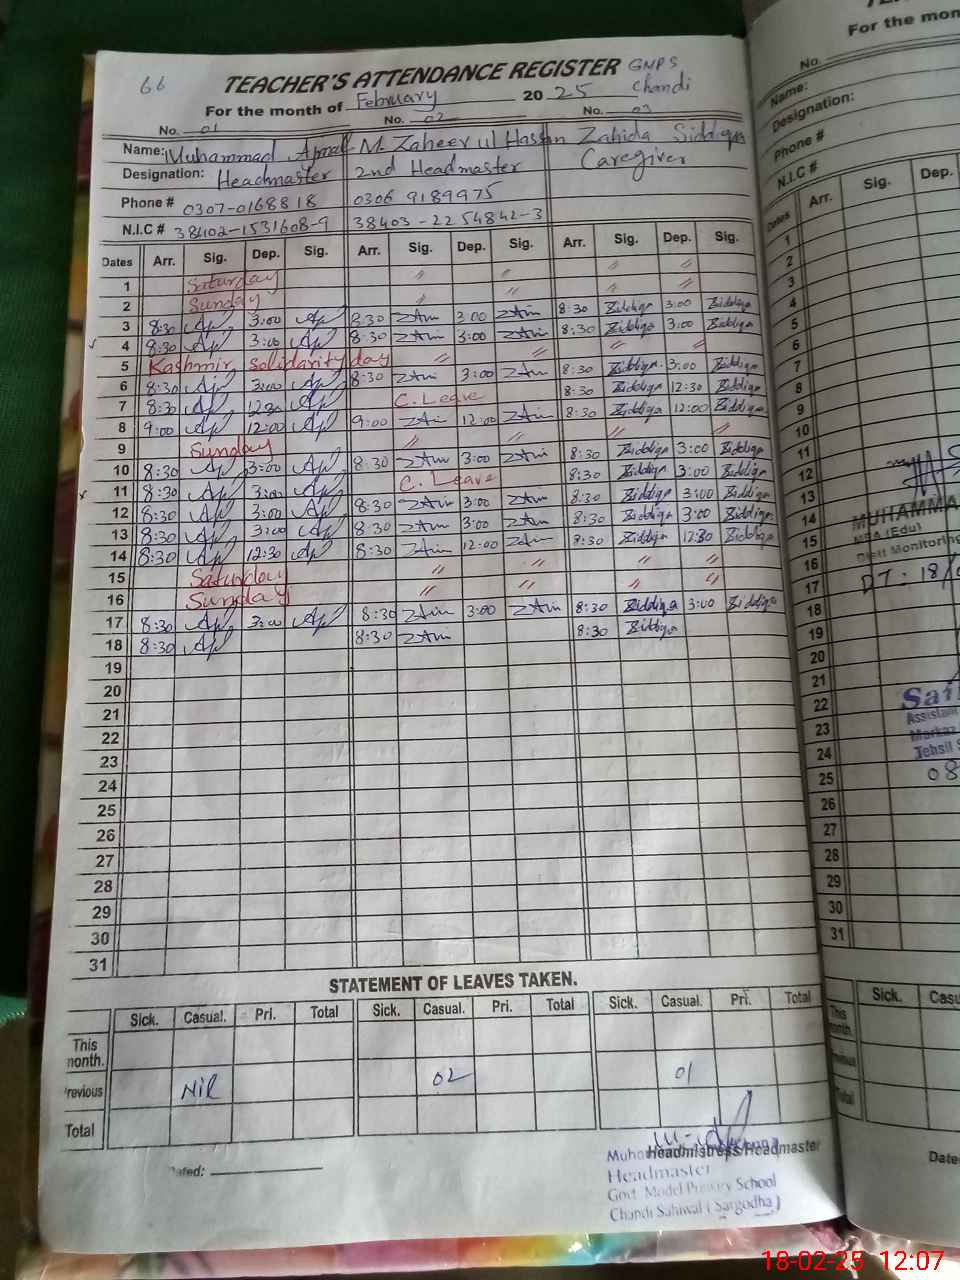 66
TEACHER'S ATTENDANCE REGISTER GMPS
For the month of February 2025 Chandi
No. 01 No. 02 No. 03
Name: Muhammad Ajmal M. Zaheer ul Hassan Zahida Siddiqa
Designation: Headmaster 2nd Headmaster Caregiver
Phone # 0307-0168818 0306 9189975
N.I.C # 38402-1531608-9 38403-2254842-3
Dates Arr. Sig. Dep. Sig. Arr. Sig. Dep. Sig. Arr. Sig. Dep. Sig.
1 Saturday " " " "
2 Sunday " " " "
3 8:30 3:00 8:30 ZAin 3:00 ZAin 8:30 Siddiqa 3:00 Siddiqa
4 8:30 3:00 8:30 ZAin 3:00 ZAin 8:30 Siddiqa 3:00 Siddiqa
5 Kashmir solidarity day " " " "
6 8:30 3:00 8:30 ZAin 3:00 ZAin 8:30 Siddiqa 3:00 Siddiqa
7 8:30 12:30 C. Leave 8:30 Siddiqa 12:30 Siddiqa
8 9:00 12:00 9:00 ZAin 12:00 ZAin 8:30 Siddiqa 12:00 Siddiqa
9 Sunday " " " "
10 8:30 3:00 8:30 ZAin 3:00 ZAin 8:30 Siddiqa 3:00 Siddiqa
11 8:30 3:00 C. Leave 8:30 Siddiqa 3:00 Siddiqa
12 8:30 3:00 8:30 ZAin 3:00 ZAin 8:30 Siddiqa 3:00 Siddiqa
13 8:30 3:00 8:30 ZAin 3:00 ZAin 8:30 Siddiqa 3:00 Siddiqa
14 8:30 12:30 8:30 ZAin 12:00 ZAin 8:30 Siddiqa 12:30 Siddiqa
15 Saturday " " " "
16 Sunday " " " "
17 8:30 3:00 8:30 ZAin 3:00 ZAin 8:30 Siddiqa 3:00 Siddiqa
18 8:30 8:30 ZAin 8:30 Siddiqa
19
20
21
22
23
24
25
26
27
28
29
30
31
STATEMENT OF LEAVES TAKEN.
Sick. Casual. Pri. Total Sick. Casual. Pri. Total Sick. Casual. Pri. Total
This month.
Previous Nil 02 01
Total
Dated:
Headmistress/Headmaster
Headmaster
Govt. Model Primary School
Chandi Sahiwal (Sargodha)
For the mon
No.
Name:
Designation:
Phone #
N.I.C #
Dates Arr. Sig. Dep.
1
2
3
4
5
6
7
8
9
10
11
12
13
14 MUHAMMA
15 MEA (Edu)
16 Distt Monitoring
17 DT: 18/
18
19
20
21
22 Sai
23 Assistant
24 Markaz
25 Tehsil S
08
26
27
28
29
30
31
Sick. Casu
This month.
Total
Date
18-02-25 12:07